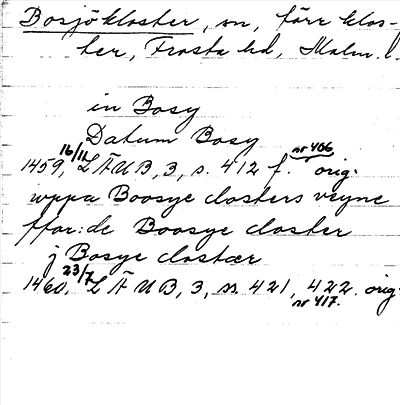 Bosjökloster, sn, förr klos-
ter, Frosta hd, Malm. l.
in Bosy
Datum Bosy
1459, 16/11 LÄUB, 3, s. 412 f. nr 406 orig.
uppa Boosye closters vegne
ffor:de Boosye closter
j Bosye clostær
1460, 23/7 LÄUB, 3, ss. 421, 422. nr 417. orig.